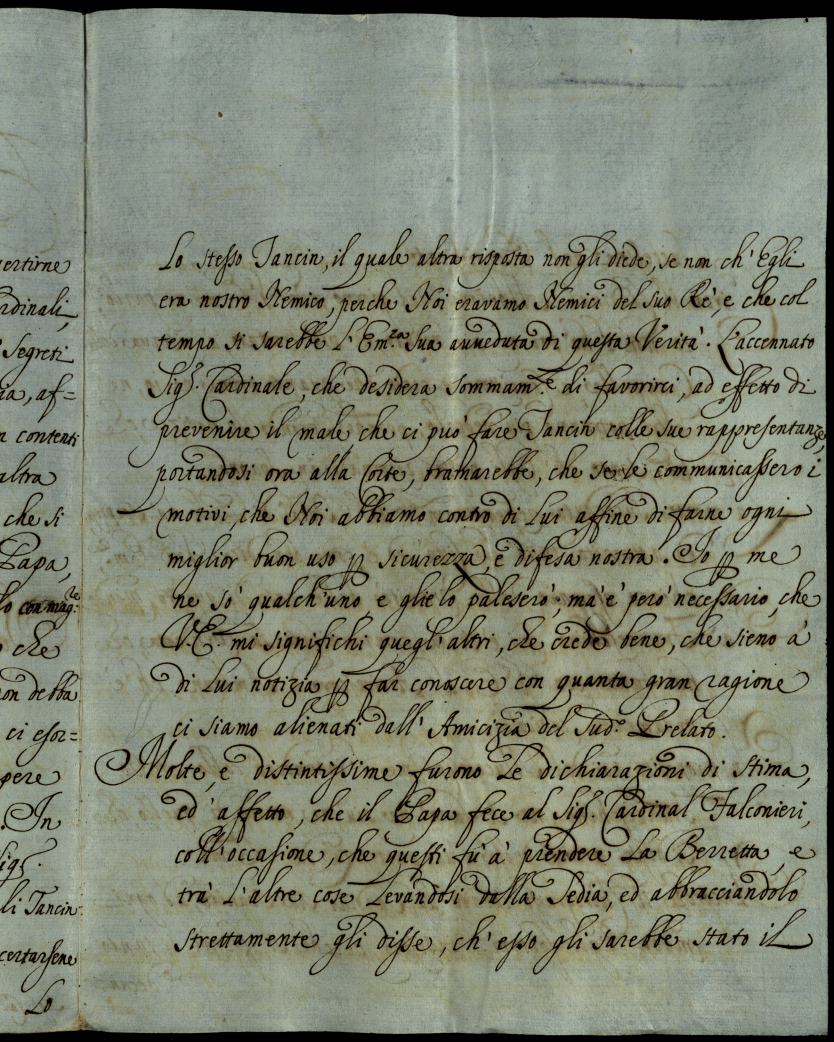 vertirne
ardinali,
Segreti
ia, af=
n contenti
altra
che si
Papa,
lo con mag:re
che
non debba
ci esor=
pere
. In
Sig.r
li Tancin
certarsene
Lo
Lo stesso Tancin, il quale altra risposta non gli diede, se non ch' Egli
era nostro Nemico, perche Noi eravamo Nemici del suo Rè, e che col
tempo si sarebbe L'Em.za Sua avveduta di questa Verità. L'accennato
Sig.r Cardinale, che desidera sommam.te di favorirci, ad effetto di
prevenire il male, che ci può fare Tancin colle sue rappresentanze,
portandosi ora alla Corte, bramarebbe, che se le communicassero i
motivi, che Noi abbiamo contro di Lui affine di farne ogni
miglior buon uso p sicurezza, e difesa nostra. Io p me
ne sò qualch'uno, e glie lo paleserò; mà è però necessario, che
V.E. mi significhi quegl'altri, che crede bene, che sieno à
di Lui notizia p far conoscere con quanta gran ragione
ci siamo alienati dall' Amicizia del Sud.o Prelato.
Molte, e distintissime furono Le dichiarazioni di Stima,
ed' affetto, che il Papa fece al Sig.r Cardinal Falconieri,
coll'occasione, che questi fù à prendere La Berretta, e
trà L'altre cose Levandosi dalla Sedia, ed abbracciandolo
strettamente gli disse, ch' esso gli sarebbe stato il